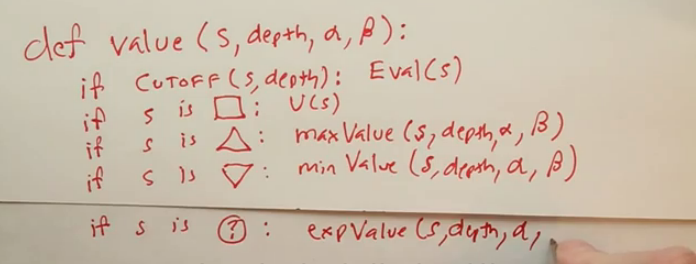 def value (s, depth, α, β):
if CUTOFF (s, depth): Eval(s)
if s is □: U(s)
if s is △: maxValue (s, depth, α, β)
if s is ▽: minValue (s, depth, α, β)
if s is ?: expValue (s, depth, α,